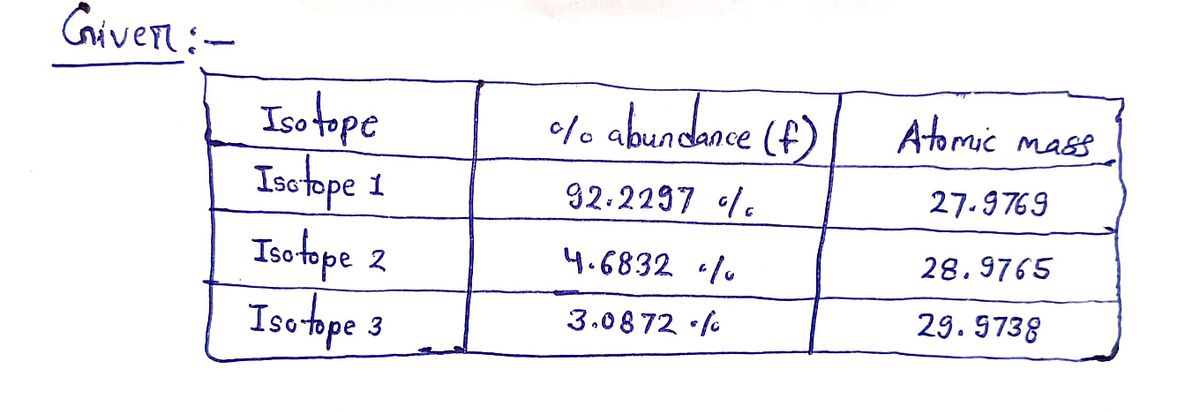 Given:-
Isotope % abundance (f) Atomic mass
Isotope 1 92.2297 % 27.9769
Isotope 2 4.6832 % 28.9765
Isotope 3 3.0872 % 29.9738